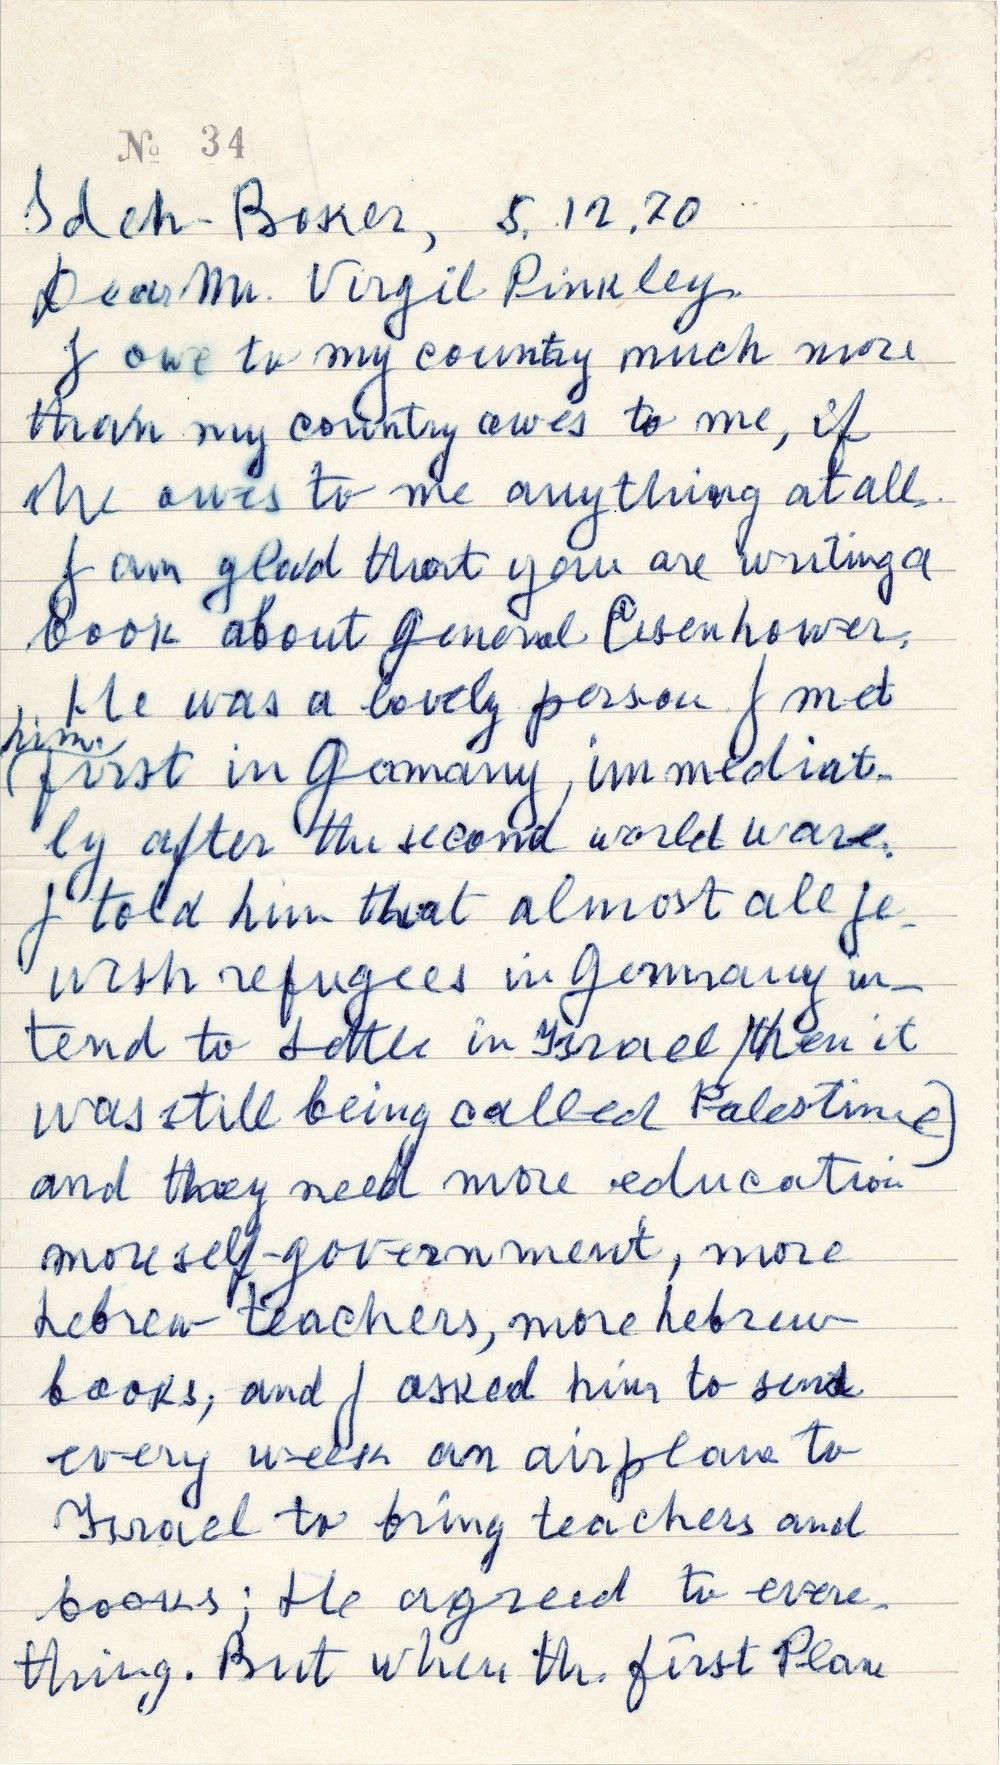 № 34
Sdeh-Boker, 5.12.70
Dear Mr. Virgil Pinkley.
I owe to my country much more
than my country owes to me, if
she owes to me anything at all.
I am glad that you are writing a
book about General Eisenhower.
He was a lovely person I met
him
(first in Germany, immediat-
ly after the second world ware.
I told him that almost all Je-
wish refugees in Germany in-
tend to settle in Israel (then it
was still being called Palestine)
and they need more education
more self-government, more
hebrew teachers, more hebrew
books; and I asked him to send
every week an airplane to
Israel to bring teachers and
books; He agreed to every-
thing. But when the first Plane